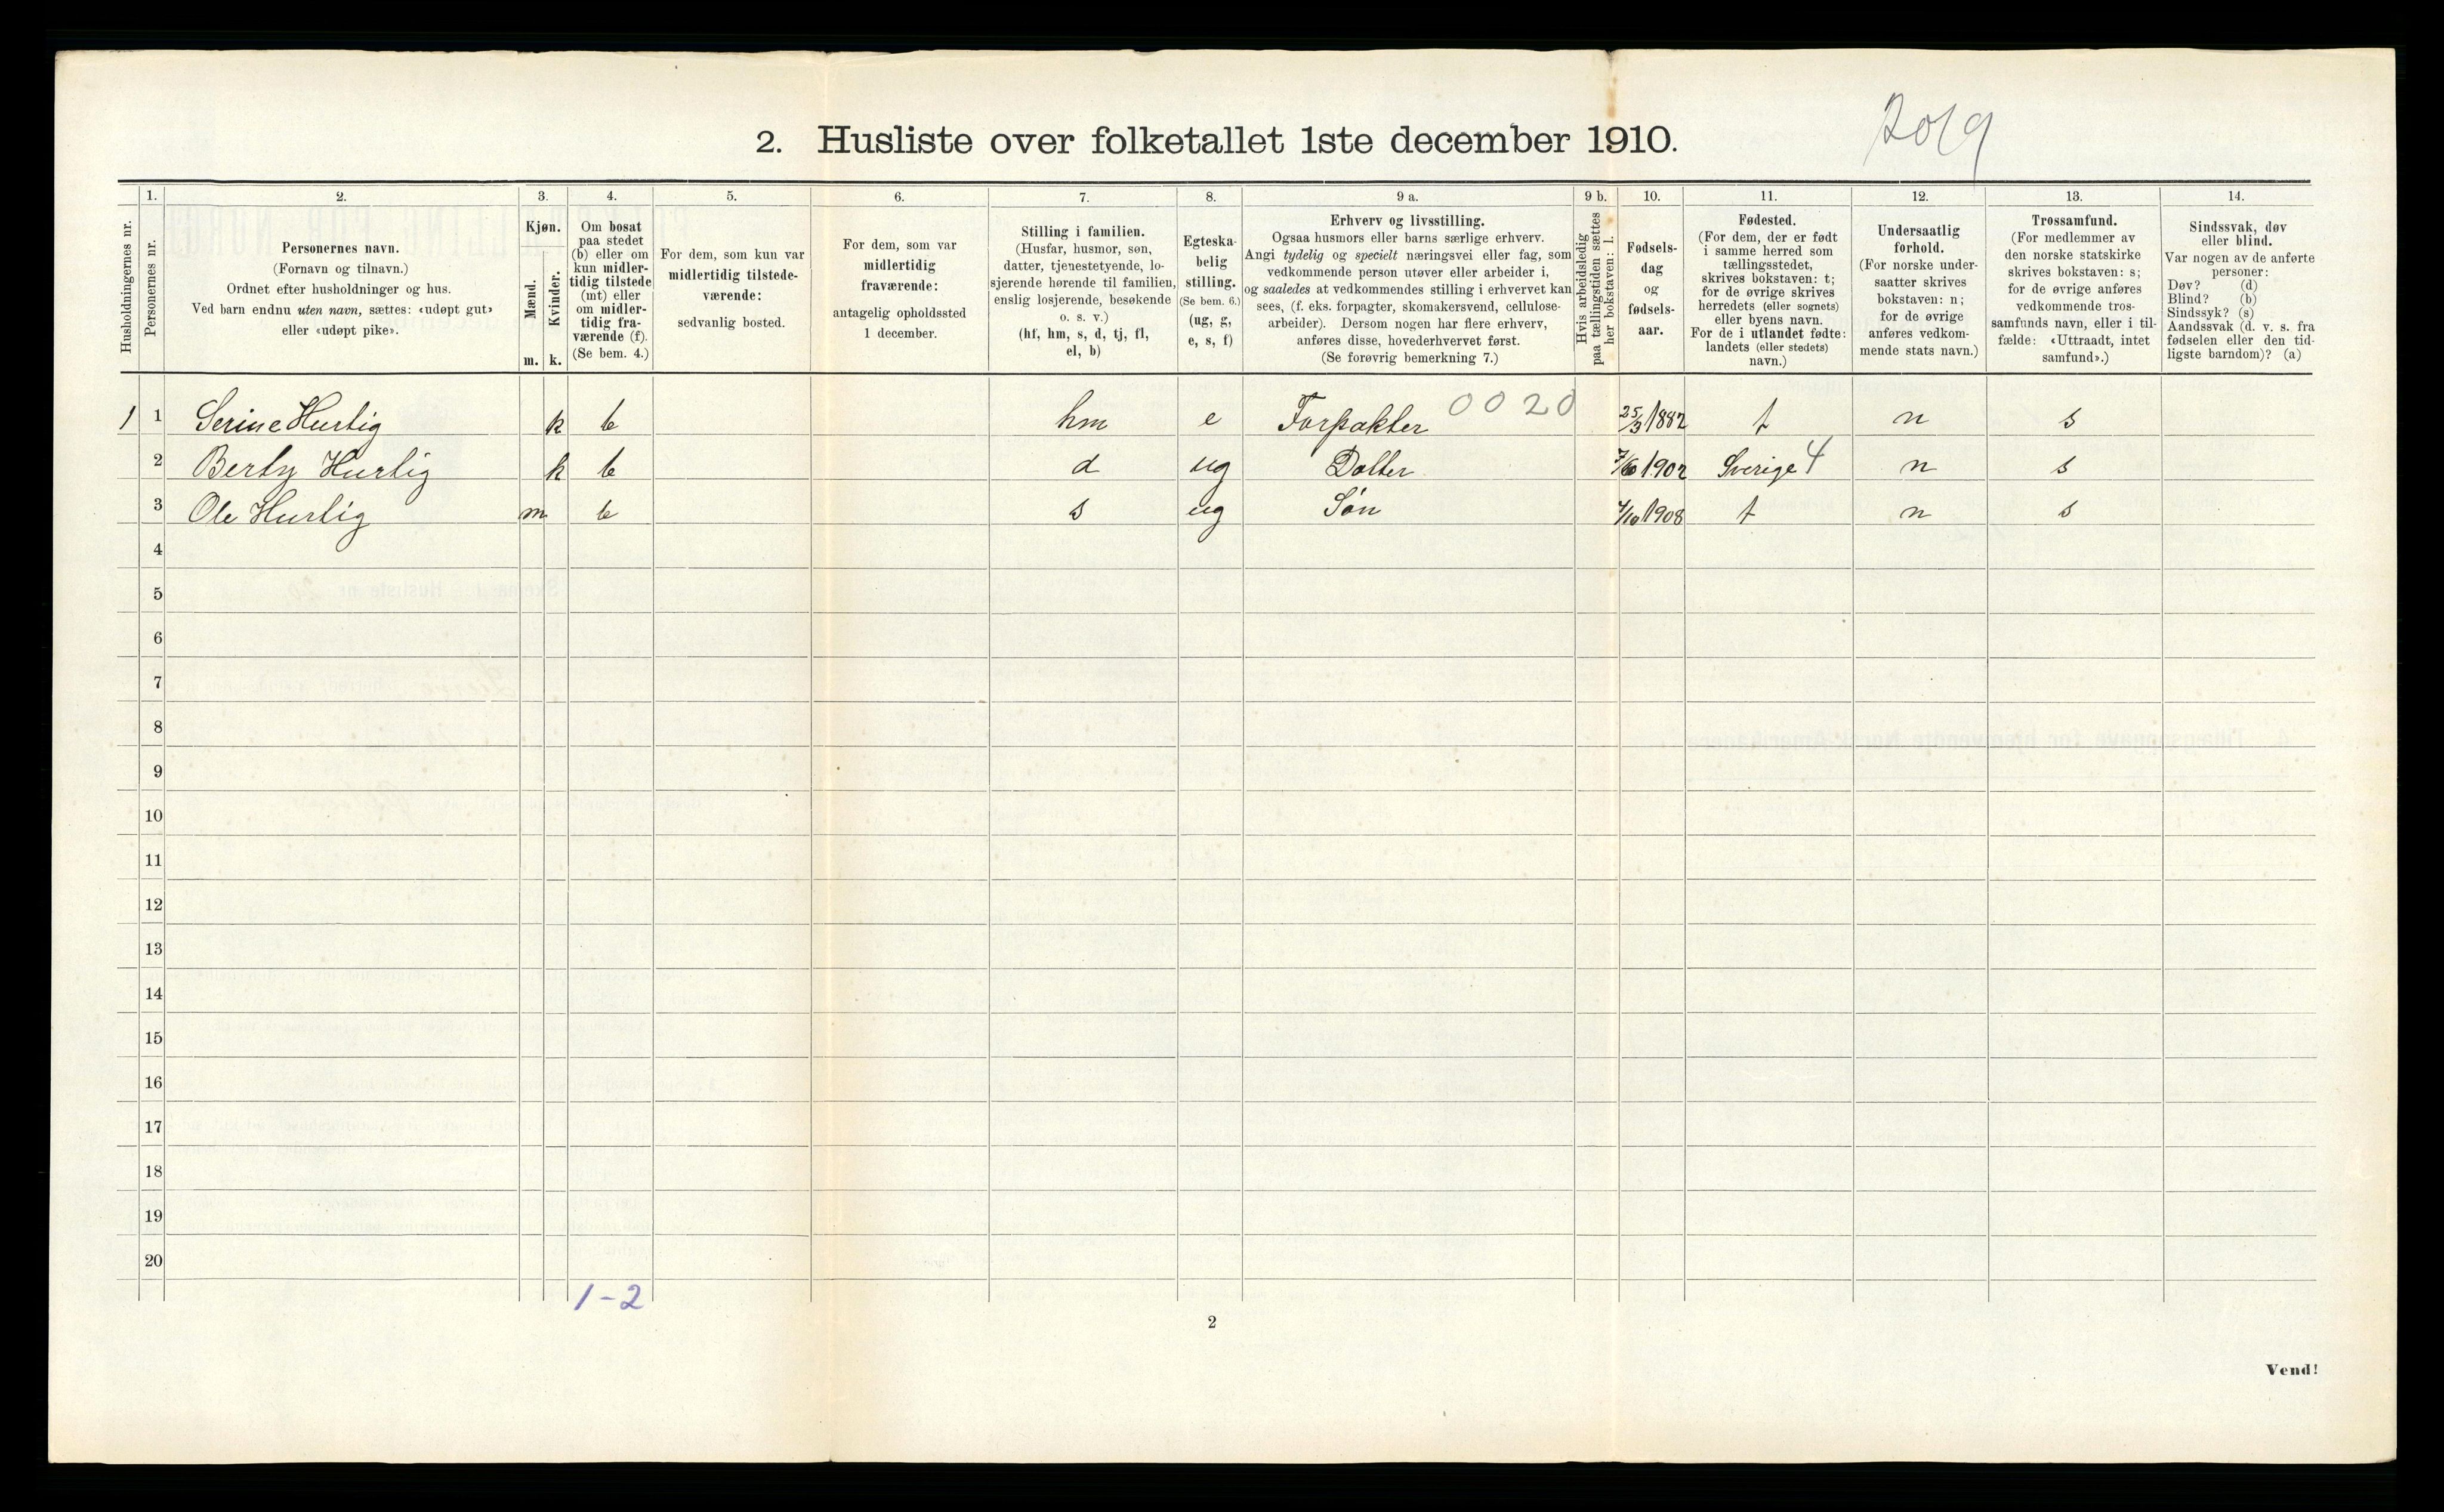 2019
2. Husliste over folketallet 1ste december 1910.
Husholdningernes nr.
1.
Personernes nr.
2.
Personernes navn.
(Fornavn og tilnavn.)
Ordnet efter husholdninger og hus.
Ved barn endnu uten navn, sættes: «udøpt gut»
eller «udøpt pike».
3.
Kjøn.
Mænd.
Kvinder.
m. k.
4.
Om bosat
paa stedet
(b) eller om
kun midler-
tidig tilstede
(mt) eller
om midler-
tidig fra-
værende (f).
(Se bem. 4.)
5.
For dem, som kun var
midlertidig tilstede-
værende:
sedvanlig bosted.
6.
For dem, som var
midlertidig
fraværende:
antagelig opholdssted
1 december.
7.
Stilling i familien.
(Husfar, husmor, søn,
datter, tjenestetyende, lo-
sjerende hørende til familien,
enslig losjerende, besøkende
o. s. v.)
(hf, hm, s, d, tj, fl,
el, b)
8.
Egteska-
belig
stilling.
(Se bem. 6.)
(ug, g,
e, s, f)
9 a.
Erhverv og livsstilling.
Ogsaa husmors eller barns særlige erhverv.
Angi tydelig og specielt næringsvei eller fag, som
vedkommende person utøver eller arbeider i,
og saaledes at vedkommendes stilling i erhvervet kan
sees, (f. eks. forpagter, skomakersvend, cellulose-
arbeider). Dersom nogen har flere erhverv,
anføres disse, hovederhvervet først.
(Se forøvrig bemerkning 7.)
9 b.
Hvis arbeidsledig
paa tællingstiden sættes
her bokstaven: l.
10.
Fødsels-
dag
og
fødsels-
aar.
11.
Fødested.
(For dem, der er født
i samme herred som
tællingsstedet,
skrives bokstaven: t;
for de øvrige skrives
herredets (eller sognets)
eller byens navn.
For de i utlandet fødte:
landets (eller stedets)
navn.)
12.
Undersaatlig
forhold.
(For norske under-
saatter skrives
bokstaven: n;
for de øvrige
anføres vedkom-
mende stats navn.)
13.
Trossamfund.
(For medlemmer av
den norske statskirke
skrives bokstaven: s;
for de øvrige anføres
vedkommende tros-
samfunds navn, eller i til-
fælde: «Uttraadt, intet
samfund».)
14.
Sindssvak, døv
eller blind.
Var nogen av de anførte
personer:
Døv? (d)
Blind? (b)
Sindssyk? (s)
Aandssvak (d. v. s. fra
fødselen eller den tid-
ligste barndom)? (a)
1 1 Serine Hurtig k b hm e Forpakter 0020 25/3 1882 t n s
2 Hurtig k b d ug Dotter 1902 Sverige 4 n s
3 Ole Hurtig m b s ug Søn 1908 t n s
4
5
6
7
8
9
10
11
12
13
14
15
16
17
18
19
20
1-2
2
Vend!